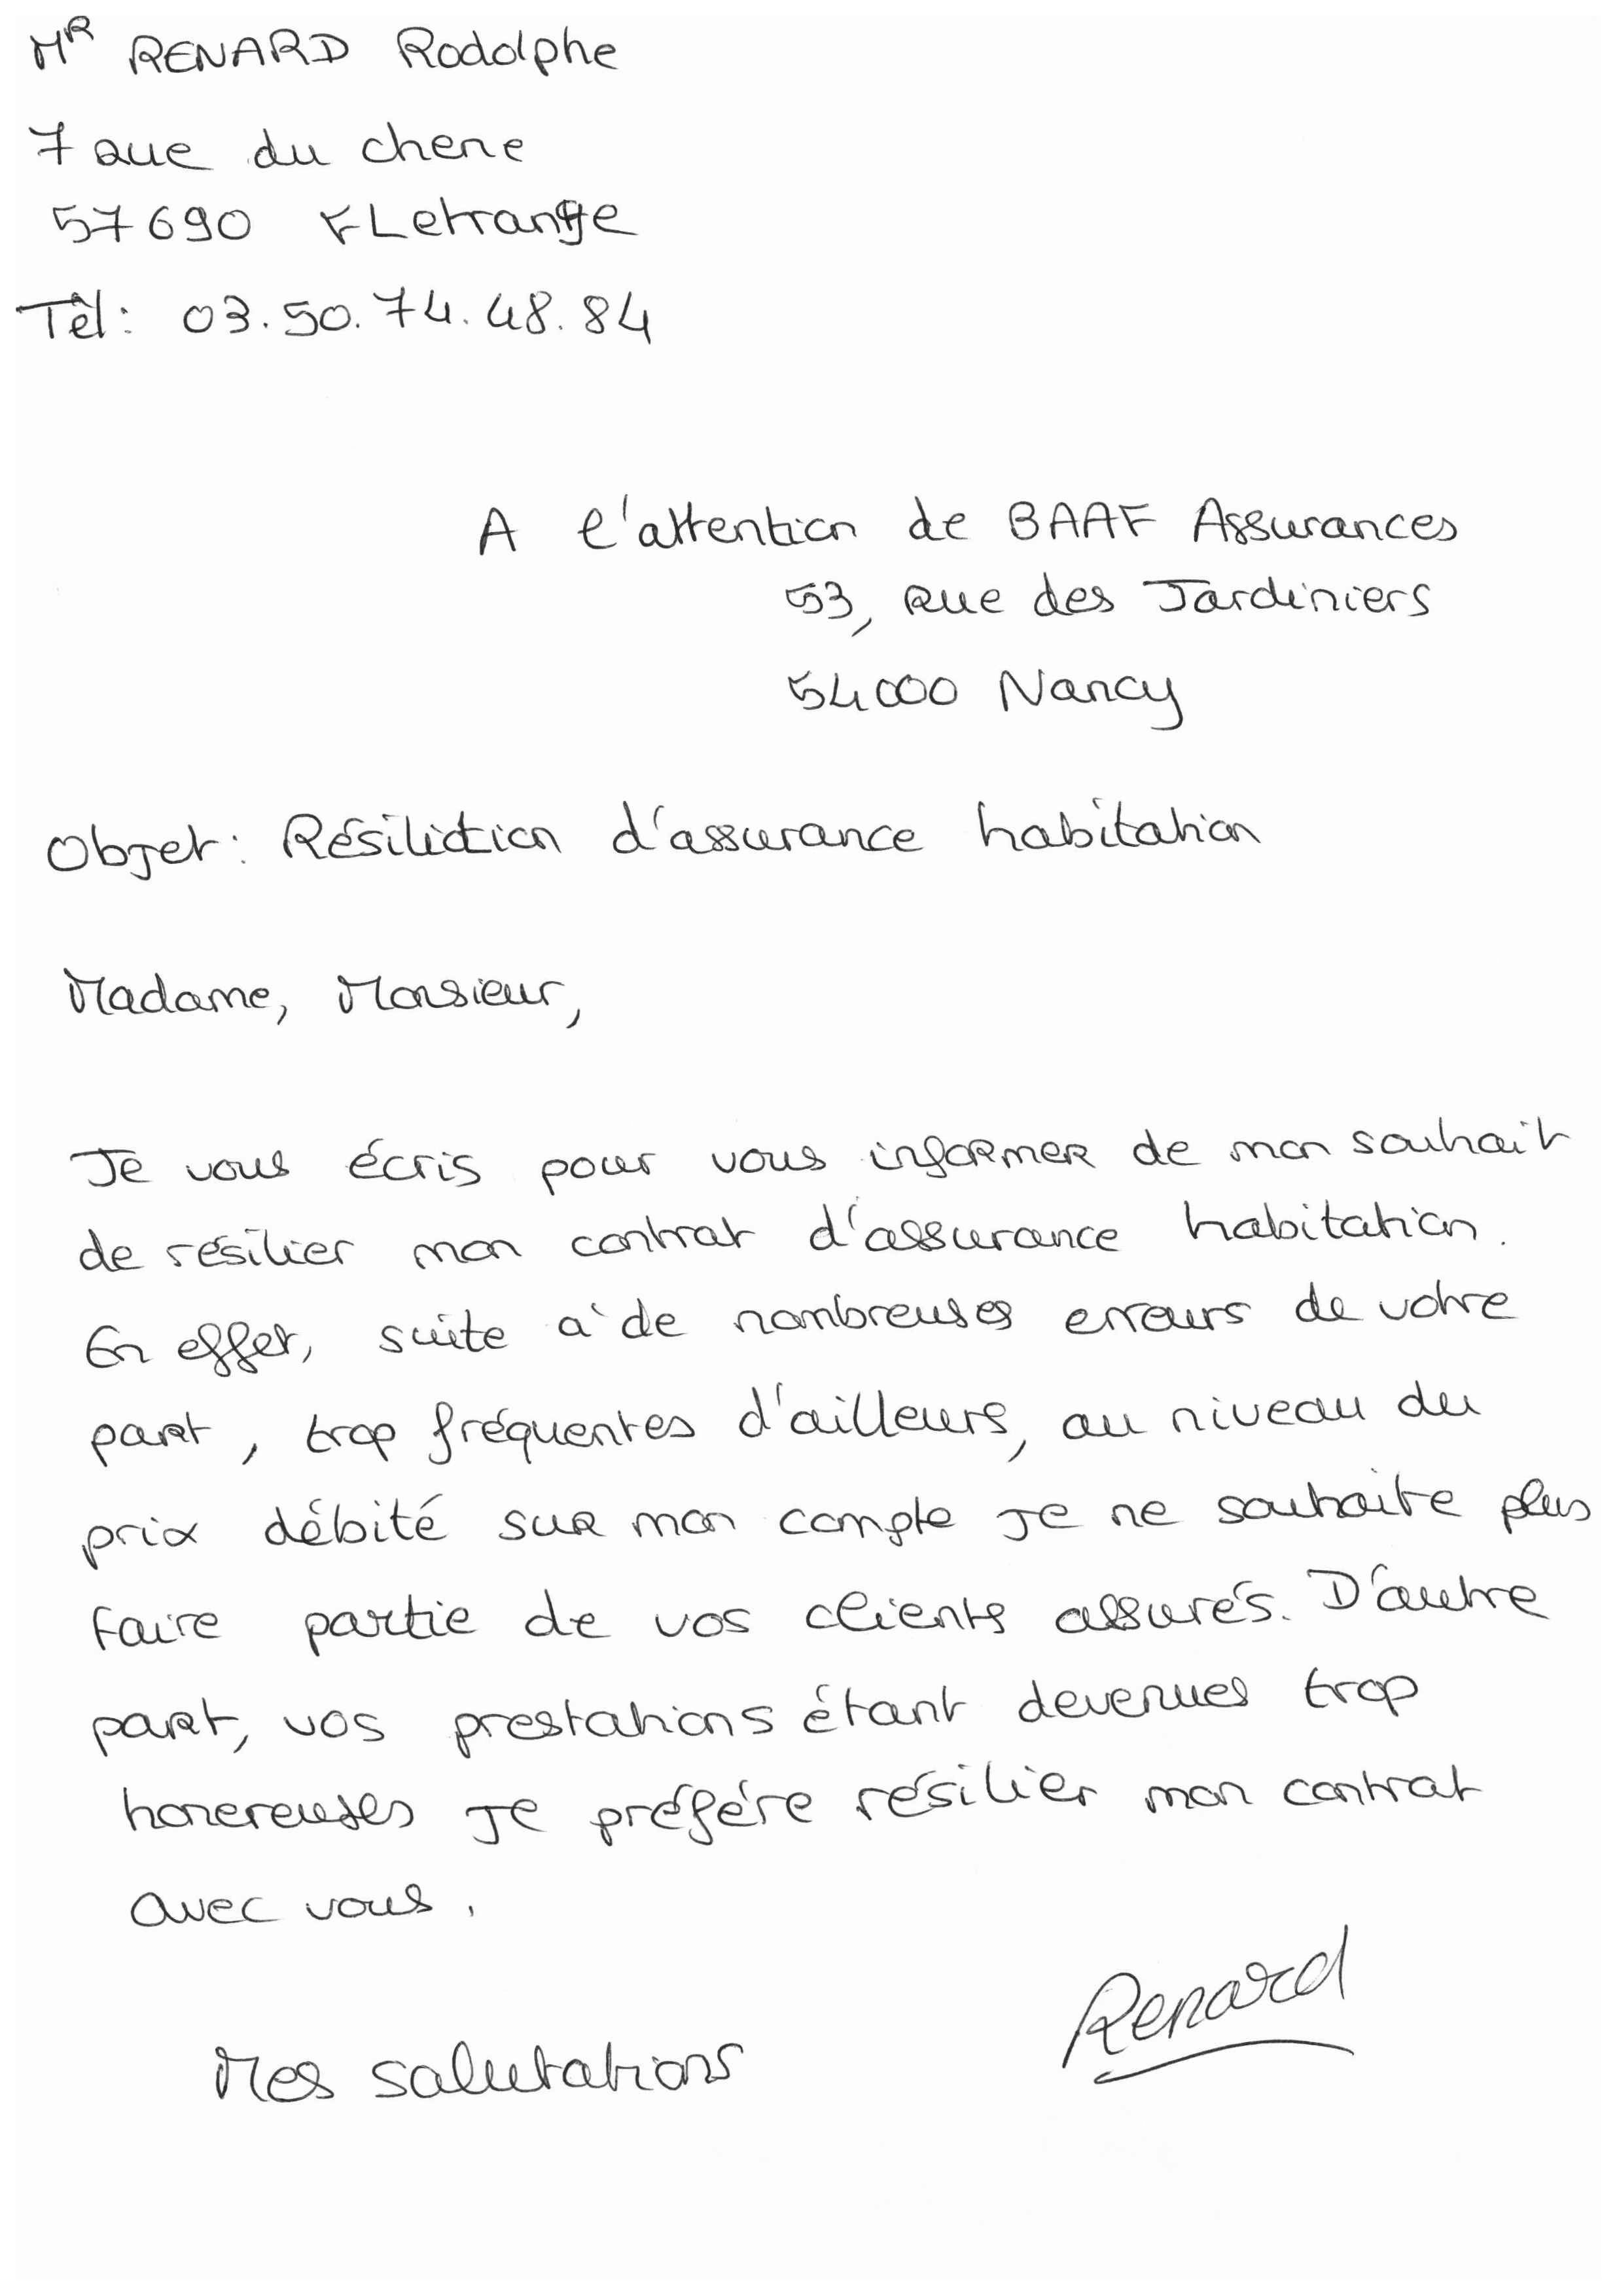 MR RENARD Rodolphe
7 rue du chene
57690 FLetrange
Tèl: 03.50.74.48.84
A l'attention de BAAF Assurances
53, Rue des Jardiniers
54000 Nancy
Objet: Résiliation d'assurance habitation
Madame, Monsieur,
Je vous écris pour vous informer de mon souhait
de résilier mon contrat d'assurance habitation.
En effet, suite à de nombreuses erreurs de votre
part, trop fréquentes d'ailleurs, au niveau du
prix débité sur mon compte je ne souhaite plus
faire partie de vos clients assurés. D'autre
part, vos prestations étant devenues trop
honereuses je préfére résilier mon contrat
avec vous.
Renard
Mes salutations